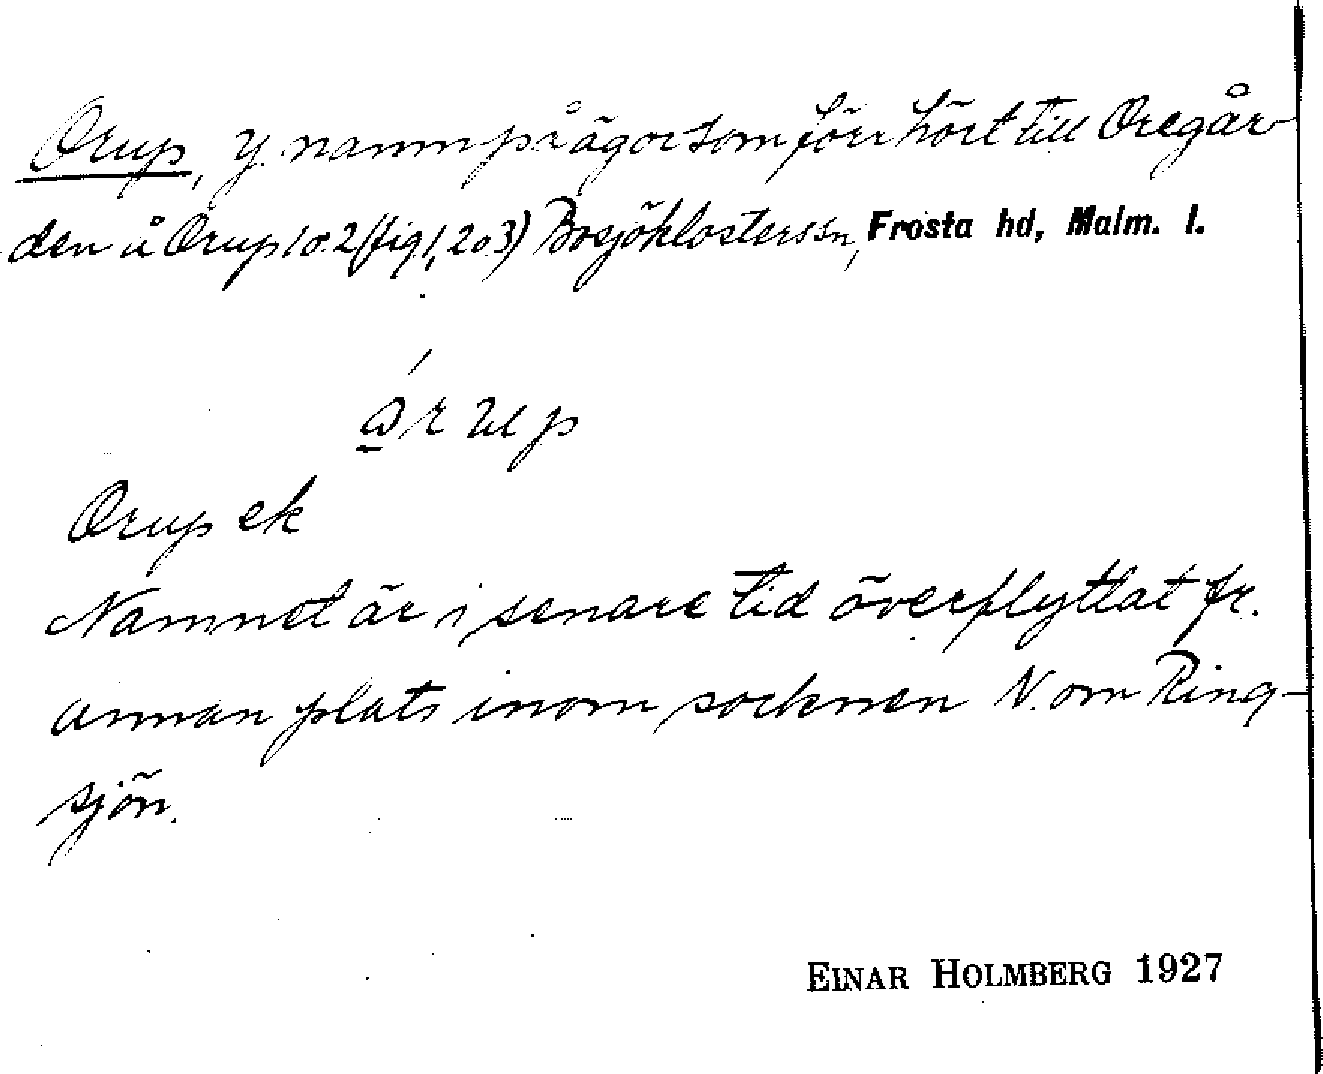 Orup, y. namn på ägor som förr hört till Oregår-
den å Orup 1 o. 2 (fig 1, 2 o 3) Bosjöklosters sn, Frosta hd, Malm. l.
ώr up
Orup ek
Namnet är i senare tid överflyttat fr.
annan plats inom socknen N. om Ring-
sjön.
EINAR HOLMBERG 1927